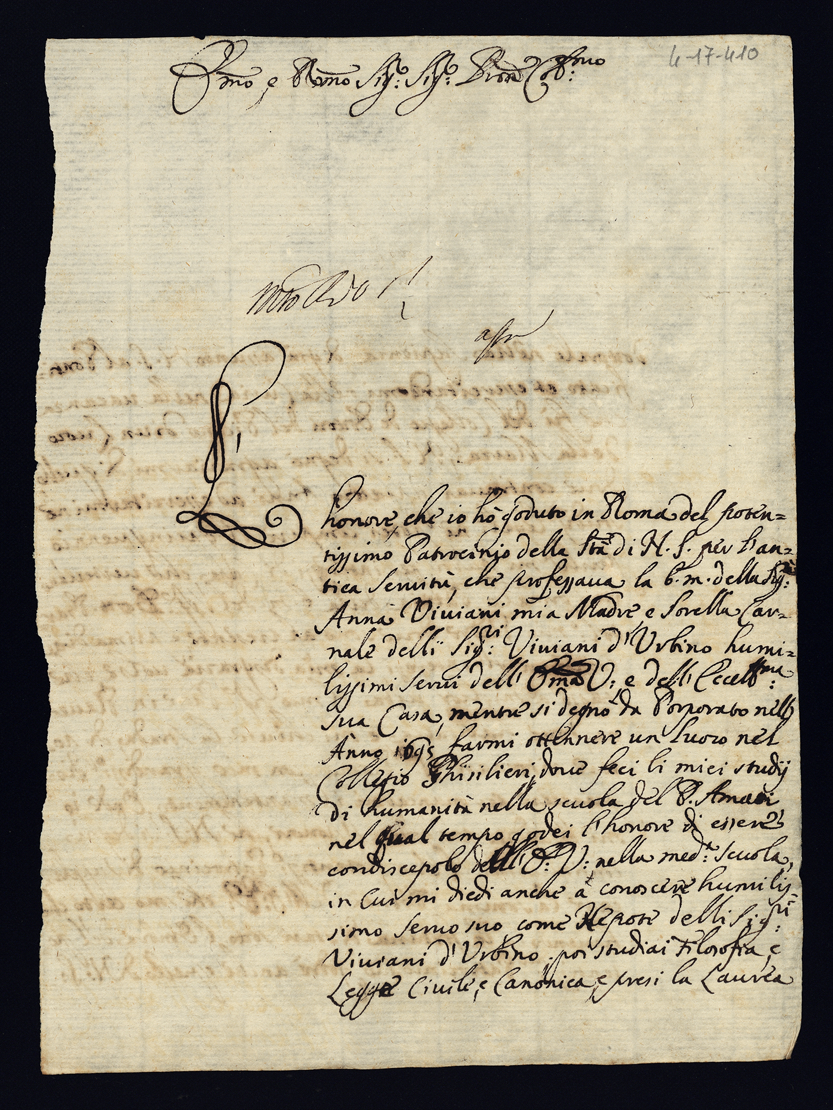 4-17-410
Emo, e Rmo Sig: Sig: Pron Colmo
L'
honore, che io hò goduto in Roma del poten=
tissimo Patrocinio della Stà di N. S. per l'an=
tica servitù, che professava la b. m. della Sig:
Anna Viviani mia Madre, e Sorella Car=
nale delli Sigri: Viviani d'Urbino humi=
lissimi servi dell' Ema V: e dell' Eccellma:
sua Casa, mentre si degnò da Porporato nell'
Anno 1695 farmi ottennere un Luoco nel
Collegio Ghisilieri, dove feci li miei studij
di humanità nella scuola del P. Amati
nel qual tempo godei l'honore di essere
condiscepolo dell' E: V: nella meda: scuola,
in cui mi diedi anche à conoscere humilis
simo servo suo, come Nepote delli Sigri:
Viviani d'Urbino: poi studiai Filosofia, e
Legge Civile, e Canonica, e presi la Laurea